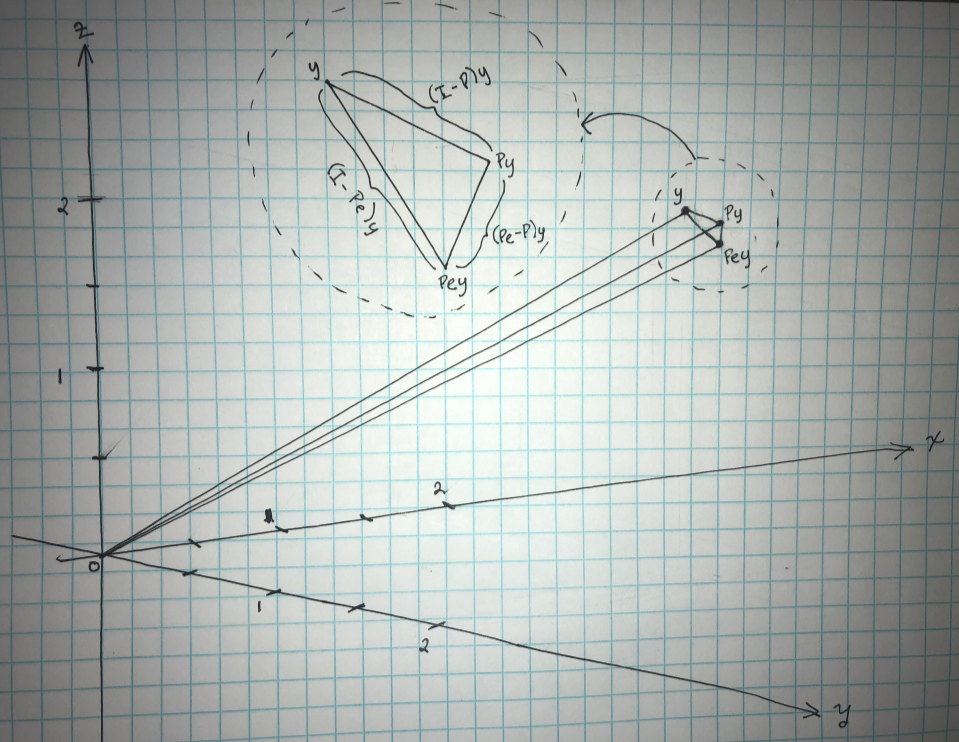 z
y
(I-P)y
Py
(I-Pe)y
(Pe-P)y
Pey
2
y
Py
Pey
1
x
2
1
0
1
2
y